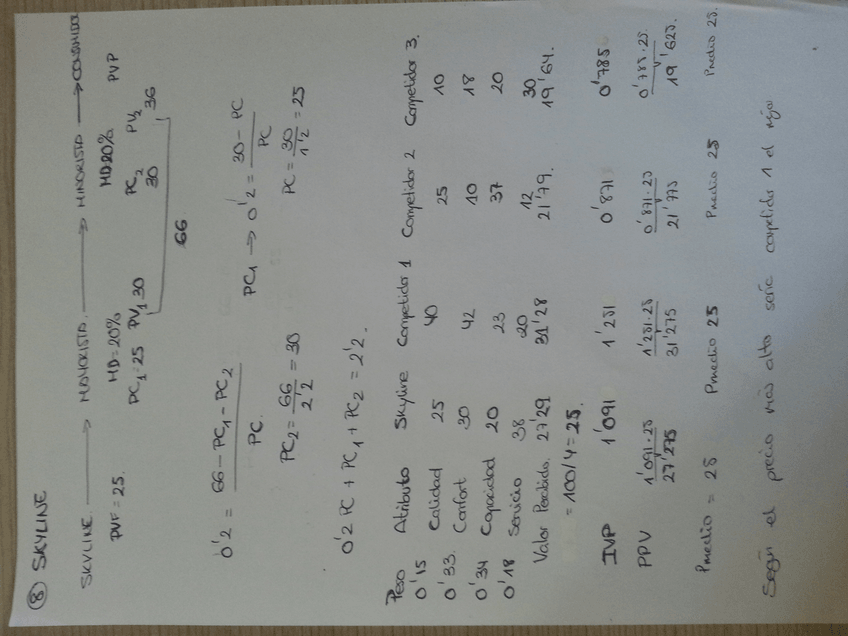 ⑧ SKYLINE
SKYLINE. → MAYORISTA. → MINORISTA → CONSUMIDOR
PVF = 25. MD=20% MD=20% PVP
PC1=25 PV1 30 PC2 30 PV2 36
66
0'2 = 66 - PC1 - PC2 / PC. PC1 → 0'2 = 30 - PC / PC
PC2 = 66 / 2'2 = 30 PC = 30 / 1'2 = 25
0'2 PC + PC1 + PC2 = 2'2.
Peso Atributo Skyline Competidor 1 Competidor 2 Competidor 3.
0'15 Calidad 25 40 25 10
0'33. Confort 30 42 10 18
0'34 Capacidad 20 23 37 20
0'18 Servicio 38 20 12 30
Valor Percibido. 27'29 31'28 21'79. 19'64.
= 100/4 = 25.
IVP 1'091 1'251 0'871 0'785
PPV 1'091·25 1'251·25 0'871·25 0'785·25.
27'275 31'275 21'775 19'625.
Pmedio = 25 Pmedio 25 Pmedio 25 Pmedio 25.
Según el precio más alto sería competidor 1 el mejor